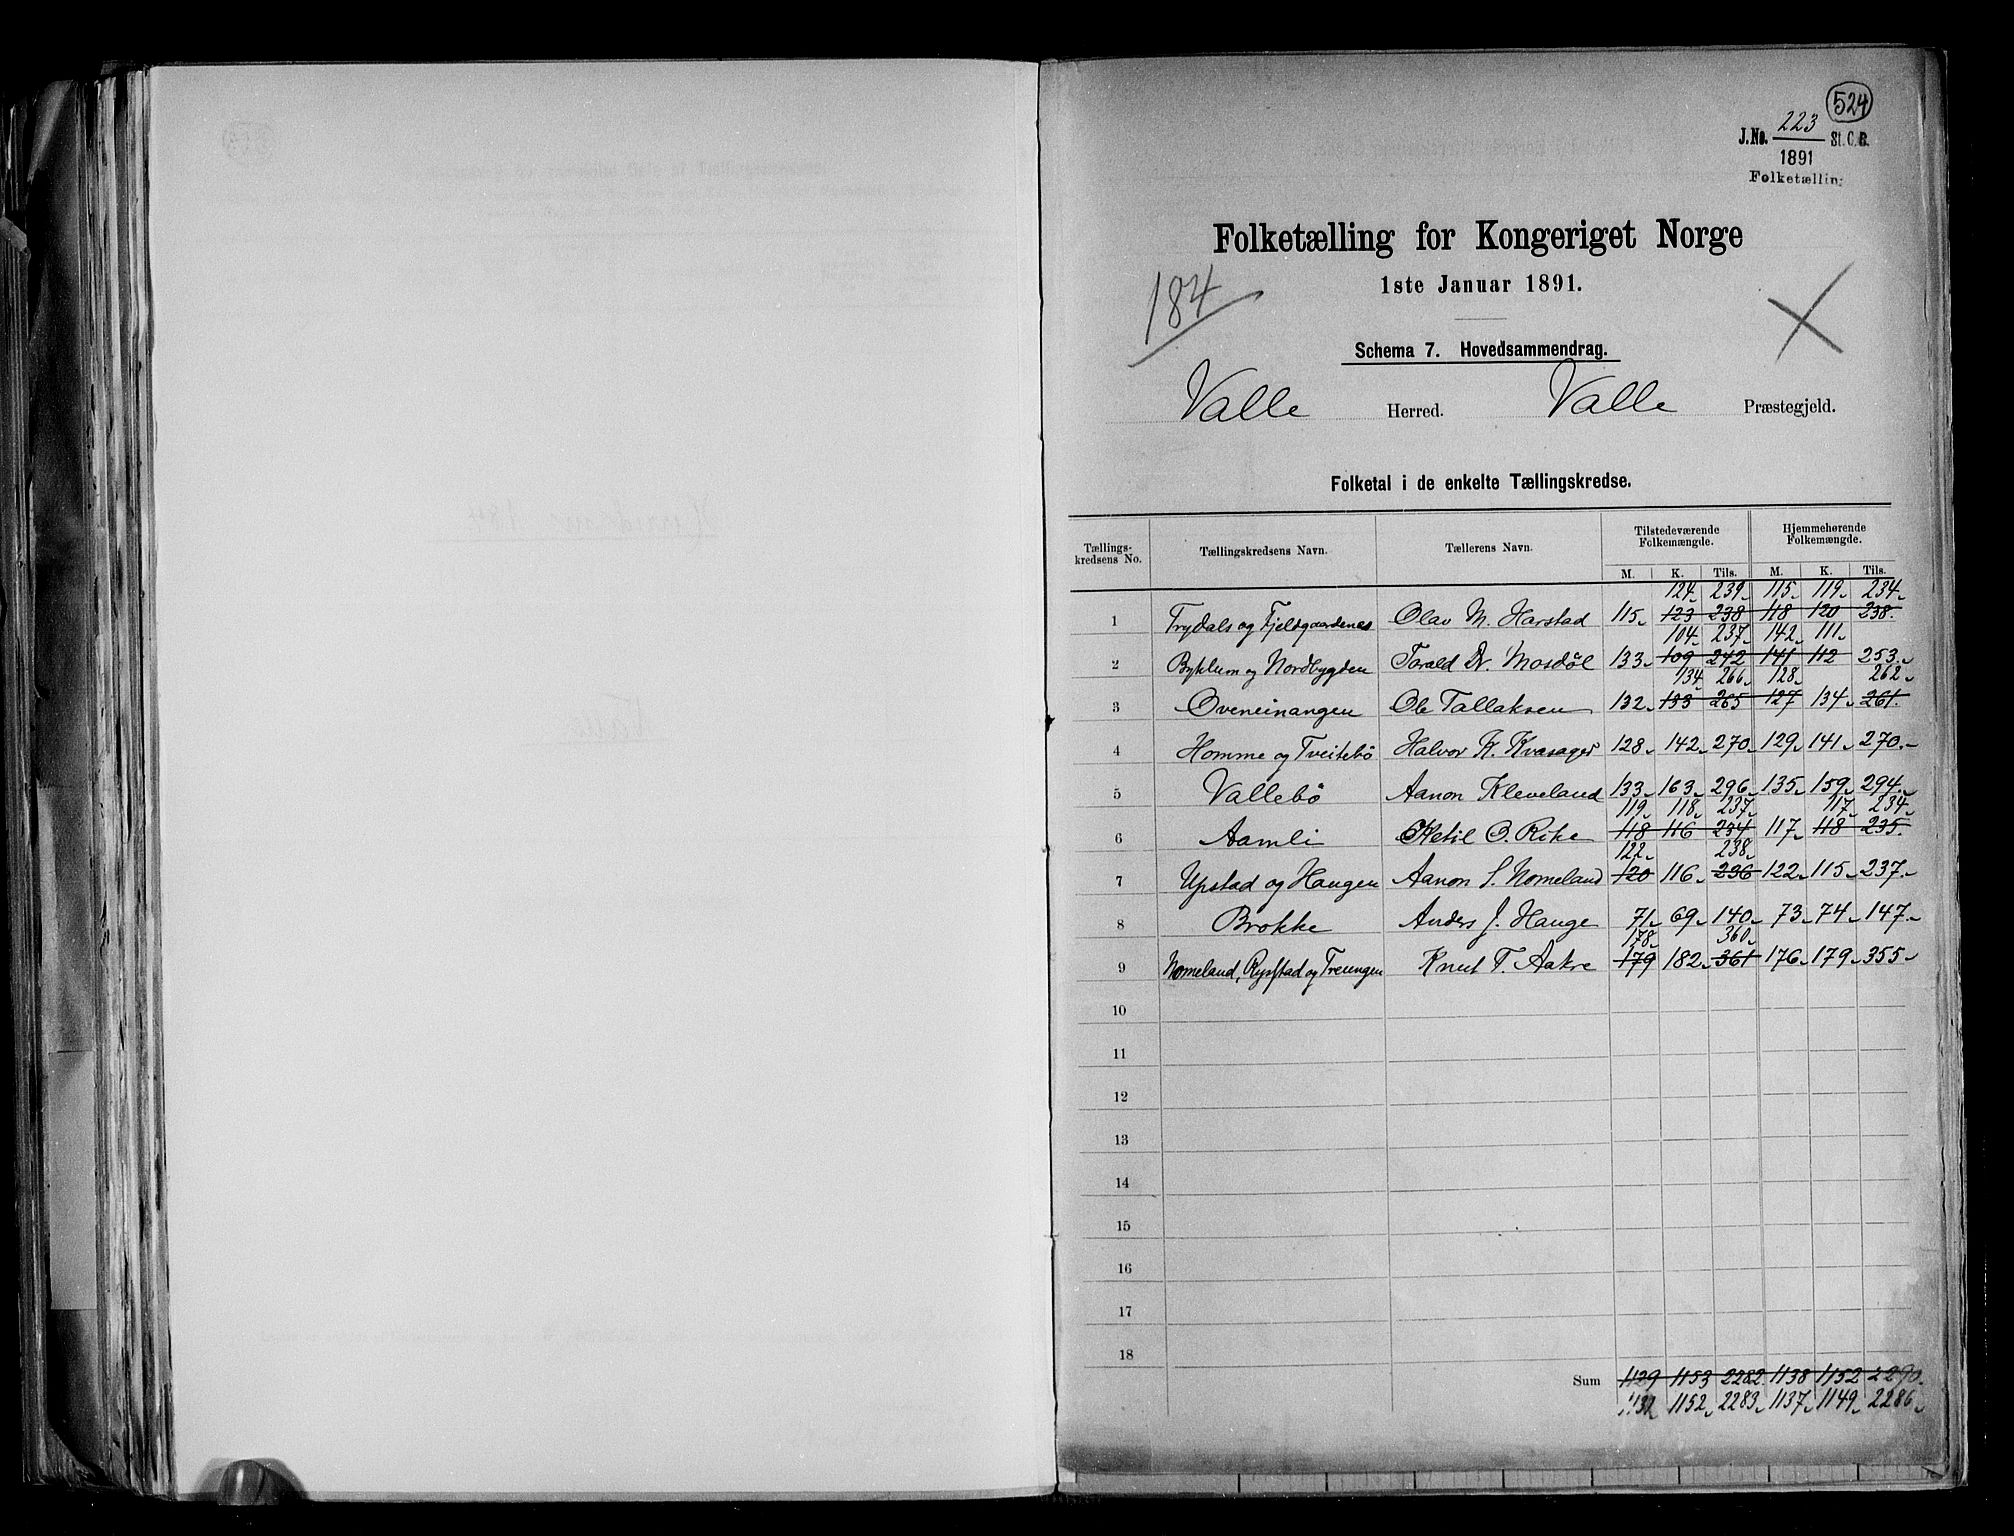 524
J.No. 223 St. C. B.
1891
Folketælling
Folketælling for Kongeriget Norge
184
1ste Januar 1891.
Schema 7. Hovedsammendrag.
Valle Herred. Valle Præstegjeld.
Folketal i de enkelte Tællingskredse.
Tællings-kredsens No. Tællingskredsens Navn. Tællerens Navn. Tilstedeværende Folkemængde. Hjemmehørende Folkemængde.
M. K. Tils. M. K. Tils.
124 239 115 119 234
1 Trydals og Fjeldgaardenes Olav M. Harstad 115 123 238 118 120 238
104 237 142 111
2 Byklum og Nordbygden Torald Dr. Mosdøl 133 109 242 141 112 253
134 266 128 262
3 Oveneinangen Ole Tallaksen 132 133 265 127 134 261
4 Homme og Tveitebø Halvor K. Kvasager 128 142 270 129 141 270
5 Vallebø Aanon Kleveland 133 163 296 135 159 294
119 118 237 117 234
6 Aamli Ketil O. Rike 118 116 234 117 118 235
122 238
7 Upstad og Haugen Aanon S. Nomeland 120 116 236 122 115 237
8 Brokke Anders J. Hauge 71 69 140 73 74 147
178 360
9 Nomeland, Rysstad og Treungen Knut T. Aakre 179 182 361 176 179 355
10
11
12
13
14
15
16
17
18
Sum 1129 1153 2282 1138 1152 2290
1131 1152 2283 1137 1149 2286